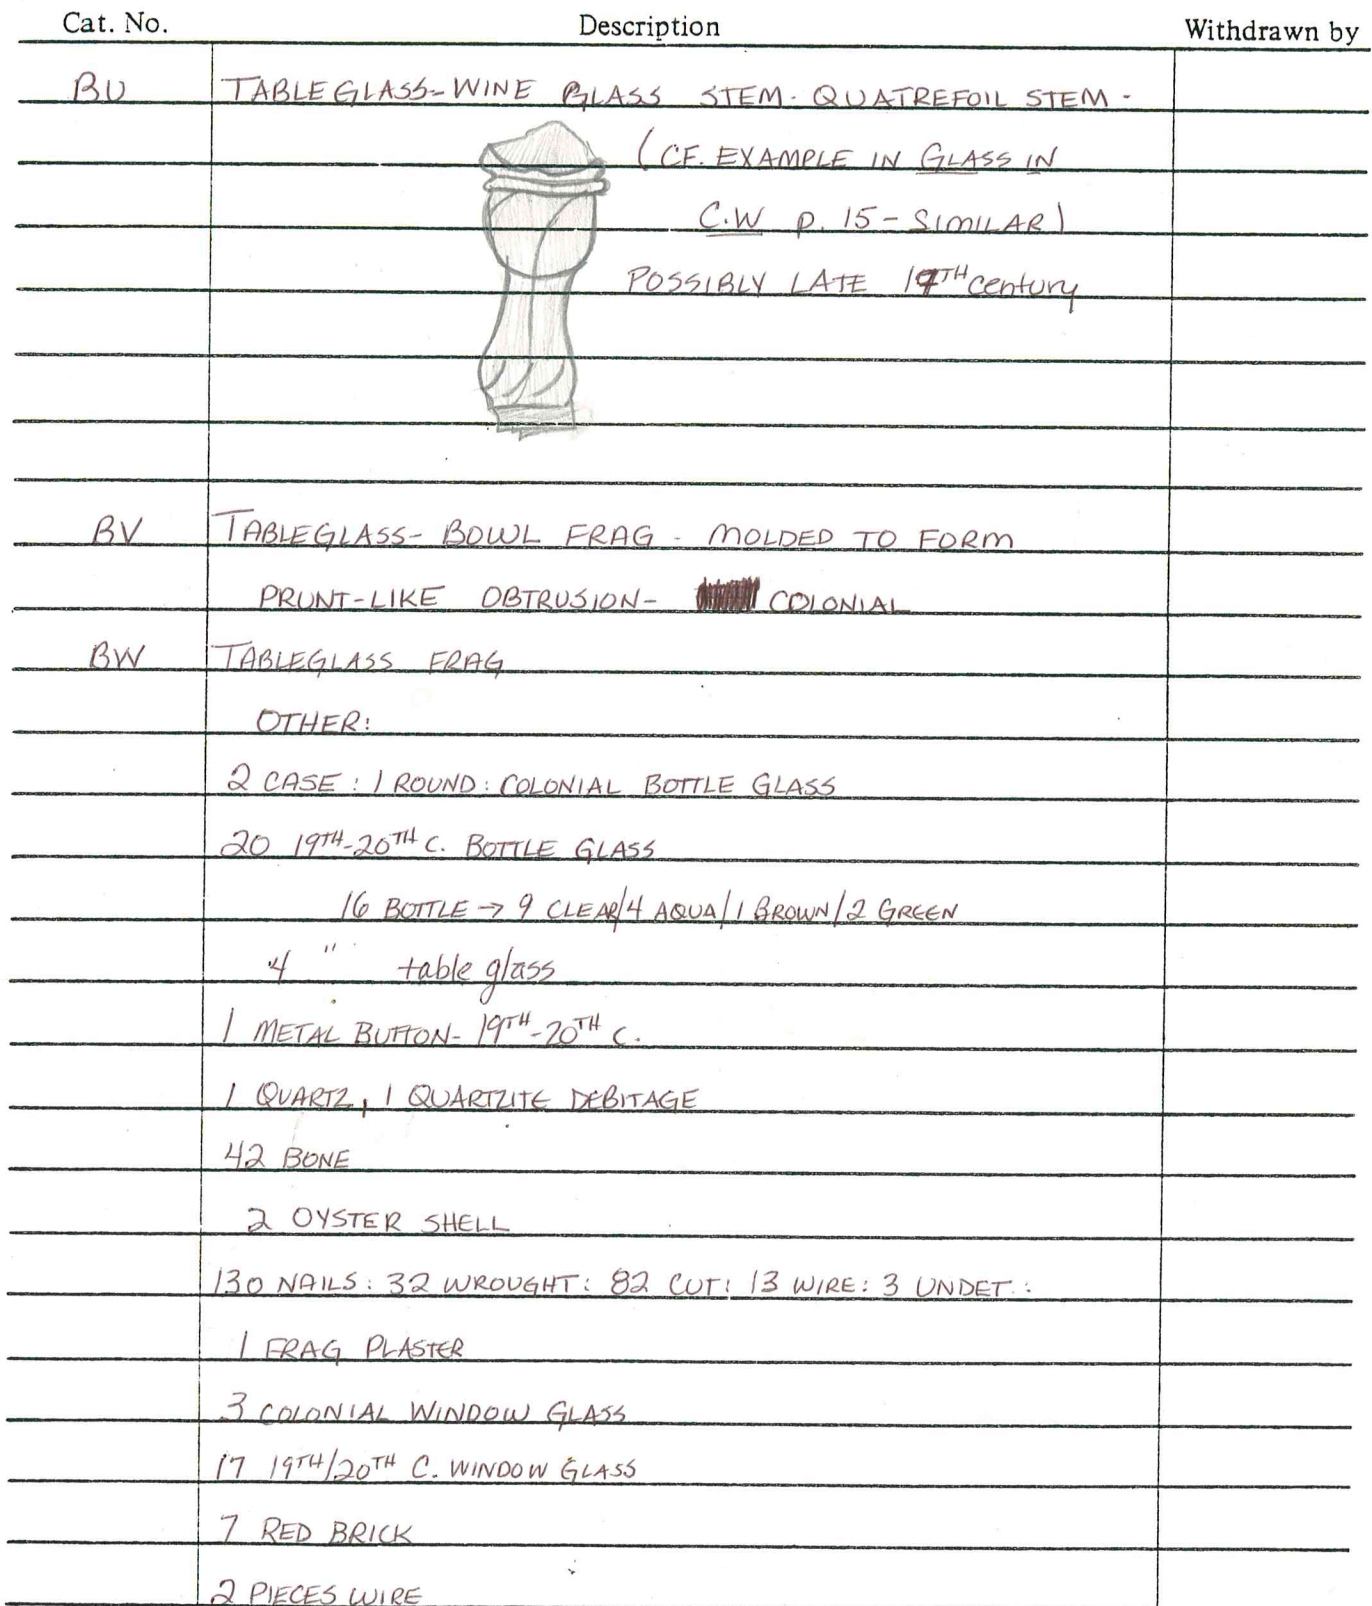 Cat. No. Description Withdrawn by
BU TABLEGLASS-WINE GLASS STEM. QUATREFOIL STEM -
(CF. EXAMPLE IN GLASS IN
C.W p. 15 - SIMILAR)
POSSIBLY LATE century
BV TABLEGLASS- BOWL FRAG - MOLDED TO FORM
PRUNT-LIKE OBTRUSION- COLONIAL
BW TABLEGLASS FRAG
OTHER:
2 CASE : 1 ROUND : COLONIAL BOTTLE GLASS
20 19TH-20TH C. BOTTLE GLASS
16 BOTTLE → 9 CLEAR/4 AQUA/1 BROWN/2 GREEN
4 " table glass
1 METAL BUTTON- 19TH-20TH C.
1 QUARTZ, 1 QUARTZITE DEBITAGE
42 BONE
2 OYSTER SHELL
130 NAILS: 32 WROUGHT: 82 CUT: 13 WIRE: 3 UNDET.:
1 FRAG PLASTER
3 COLONIAL WINDOW GLASS
17 19TH/20TH C. WINDOW GLASS
7 RED BRICK
2 PIECES WIRE